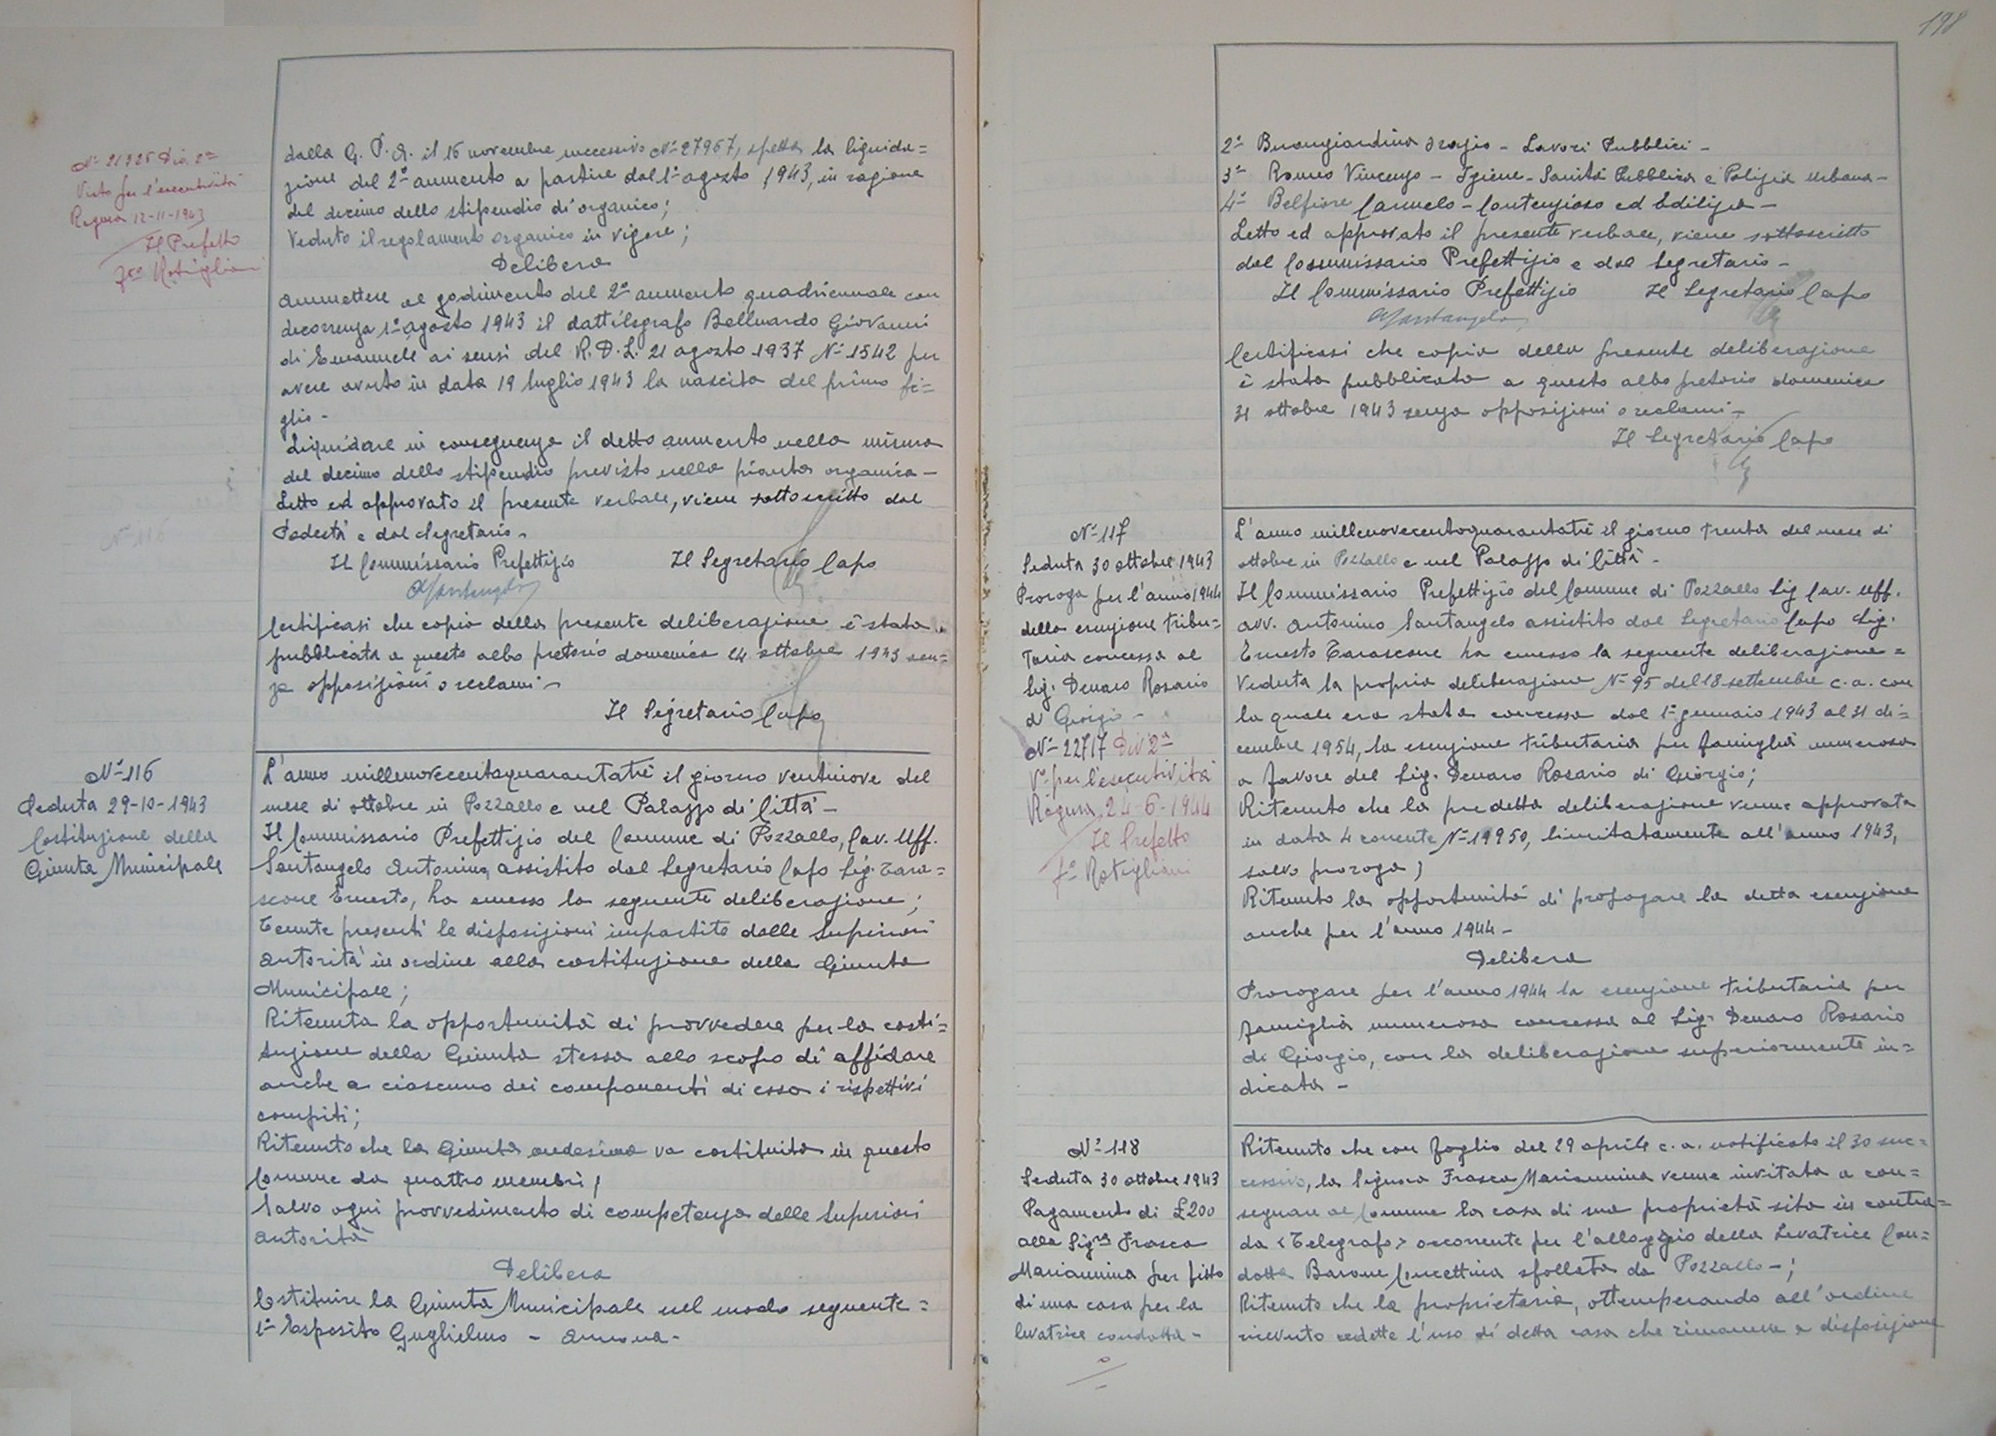 N° 21925 Div 2ª
Visto per l'esecutività
Ragusa 12-11-1943
Il Prefetto
dalla G. P. A. il 16 novembre successivo N° 27967, spetta la liquida=
zione del 2° aumento a partire dal 1° agosto 1943, in ragione
del decimo dello stipendio di organico;
Veduto il regolamento organico in vigore;
Delibera
Ammettere al godimento del 2° aumento quadriennale con
decorrenza 1° agosto 1943 il dattilografo Belluardo Giovanni
di Emanuele ai sensi del R. D. L. 21 agosto 1937 N° 1542 per
avere avuto in data 19 luglio 1943 la nascita del primo fi=
glio -
Liquidare in conseguenza il detto aumento nella misura
del decimo dello stipendio previsto nella pianta organica -
Letto ed approvato il presente verbale, viene sottoscritto dal
Podestà e dal Segretario -
Il Commissario Prefettizio Il Segretario Capo
ASantangelo
Certificasi che copia della presente deliberazione è stata
pubblicata a questo albo pretorio domenica 24 ottobre 1943 sen=
za opposizioni o reclami -
Il Segretario Capo
N° 116
Seduta 29-10-1943
Costituzione della
Giunta Municipale
L'anno millenovecentoquarantatrè il giorno ventinove del
mese di ottobre in Pozzallo e nel Palazzo di Città -
Il Commissario Prefettizio del Comune di Pozzallo, Cav. Uff.
Santangelo Antonino, assistito dal Segretario Capo Sig. Tara=
scone Ernesto, ha emesso la seguente deliberazione;
Tenute presenti le disposizioni impartite dalle Superiori
autorità in ordine alla costituzione della Giunta
Municipale;
Ritenuta la opportunità di provvedere per la costi=
tuzione della Giunta stessa allo scopo di affidare
anche a ciascuno dei componenti di essa i rispettivi
compiti;
Ritenuto che la Giunta medesima va costituita in questo
Comune da quattro membri;
Salvo ogni provvedimento di competenza delle Superiori
autorità
Delibera
Costituire la Giunta Municipale nel modo seguente =
1° Esposito Guglielmo - Annona -
198
2° Buongiardino Orazio - Lavori Pubblici -
3° Romeo Vincenzo - Igiene - Sanità Pubblica e Polizia Urbana -
4° Belfiore Carmelo - Contenzioso ed Edilizia -
Letto ed approvato il presente verbale, viene sottoscritto
dal Commissario Prefettizio e dal Segretario -
Il Commissario Prefettizio Il Segretario Capo
ASantangelo
Certificasi che copia della presente deliberazione
è stata pubblicata a questo albo pretorio domenica
31 ottobre 1943 senza opposizioni o reclami -
Il Segretario Capo
N° 117
Seduta 30 ottobre 1943
Proroga per l'anno 1944
della esenzione tribu=
taria concessa al
Sig. Denaro Rosario
di Giorgio -
N° 22717 Div 2ª
V° per l'esecutività
Ragusa, 24-6-1944
Il Prefetto
L'anno millenovecentoquarantatrè il giorno trenta del mese di
ottobre in Pozzallo e nel Palazzo di Città -
Il Commissario Prefettizio del Comune di Pozzallo Sig. Cav. Uff.
avv. Antonino Santangelo assistito dal Segretario Capo Sig.
Ernesto Tarascone ha emesso la seguente deliberazione =
Veduta la propria deliberazione N° 95 del 18 settembre c. a. con
la quale era stata concessa dal 1° gennaio 1943 al 31 di=
cembre 1954, la esenzione tributaria per famiglia numerosa
a favore del Sig. Denaro Rosario di Giorgio;
Ritenuto che la predetta deliberazione venne approvata
in data 4 corrente N° 19950, limitatamente all'anno 1943,
salvo proroga;
Ritenuto la opportunità di prorogare la detta esenzione
anche per l'anno 1944 -
Delibera
Prorogare per l'anno 1944 la esenzione tributaria per
famiglia numerosa concessa al Sig. Denaro Rosario
di Giorgio, con la deliberazione superiormente in=
dicata -
N° 118
Seduta 30 ottobre 1943
Pagamento di £ 200
alla Sigra Frasca
Mariannina per fitto
di una casa per la
levatrice condotta -
Ritenuto che con foglio del 29 aprile c. a. notificato il 30 suc=
cessivo, la Signora Frasca Mariannina venne invitata a con=
segnare al Comune la casa di sua proprietà sita in contra=
da <Telegrafo> occorrente per l'alloggio della Levatrice Con=
dotta Barone Concettina sfollata da Pozzallo -;
Ritenuto che la proprietaria, ottemperando all'ordine
ricevuto cedette l'uso di detta casa che rimane a disposizione